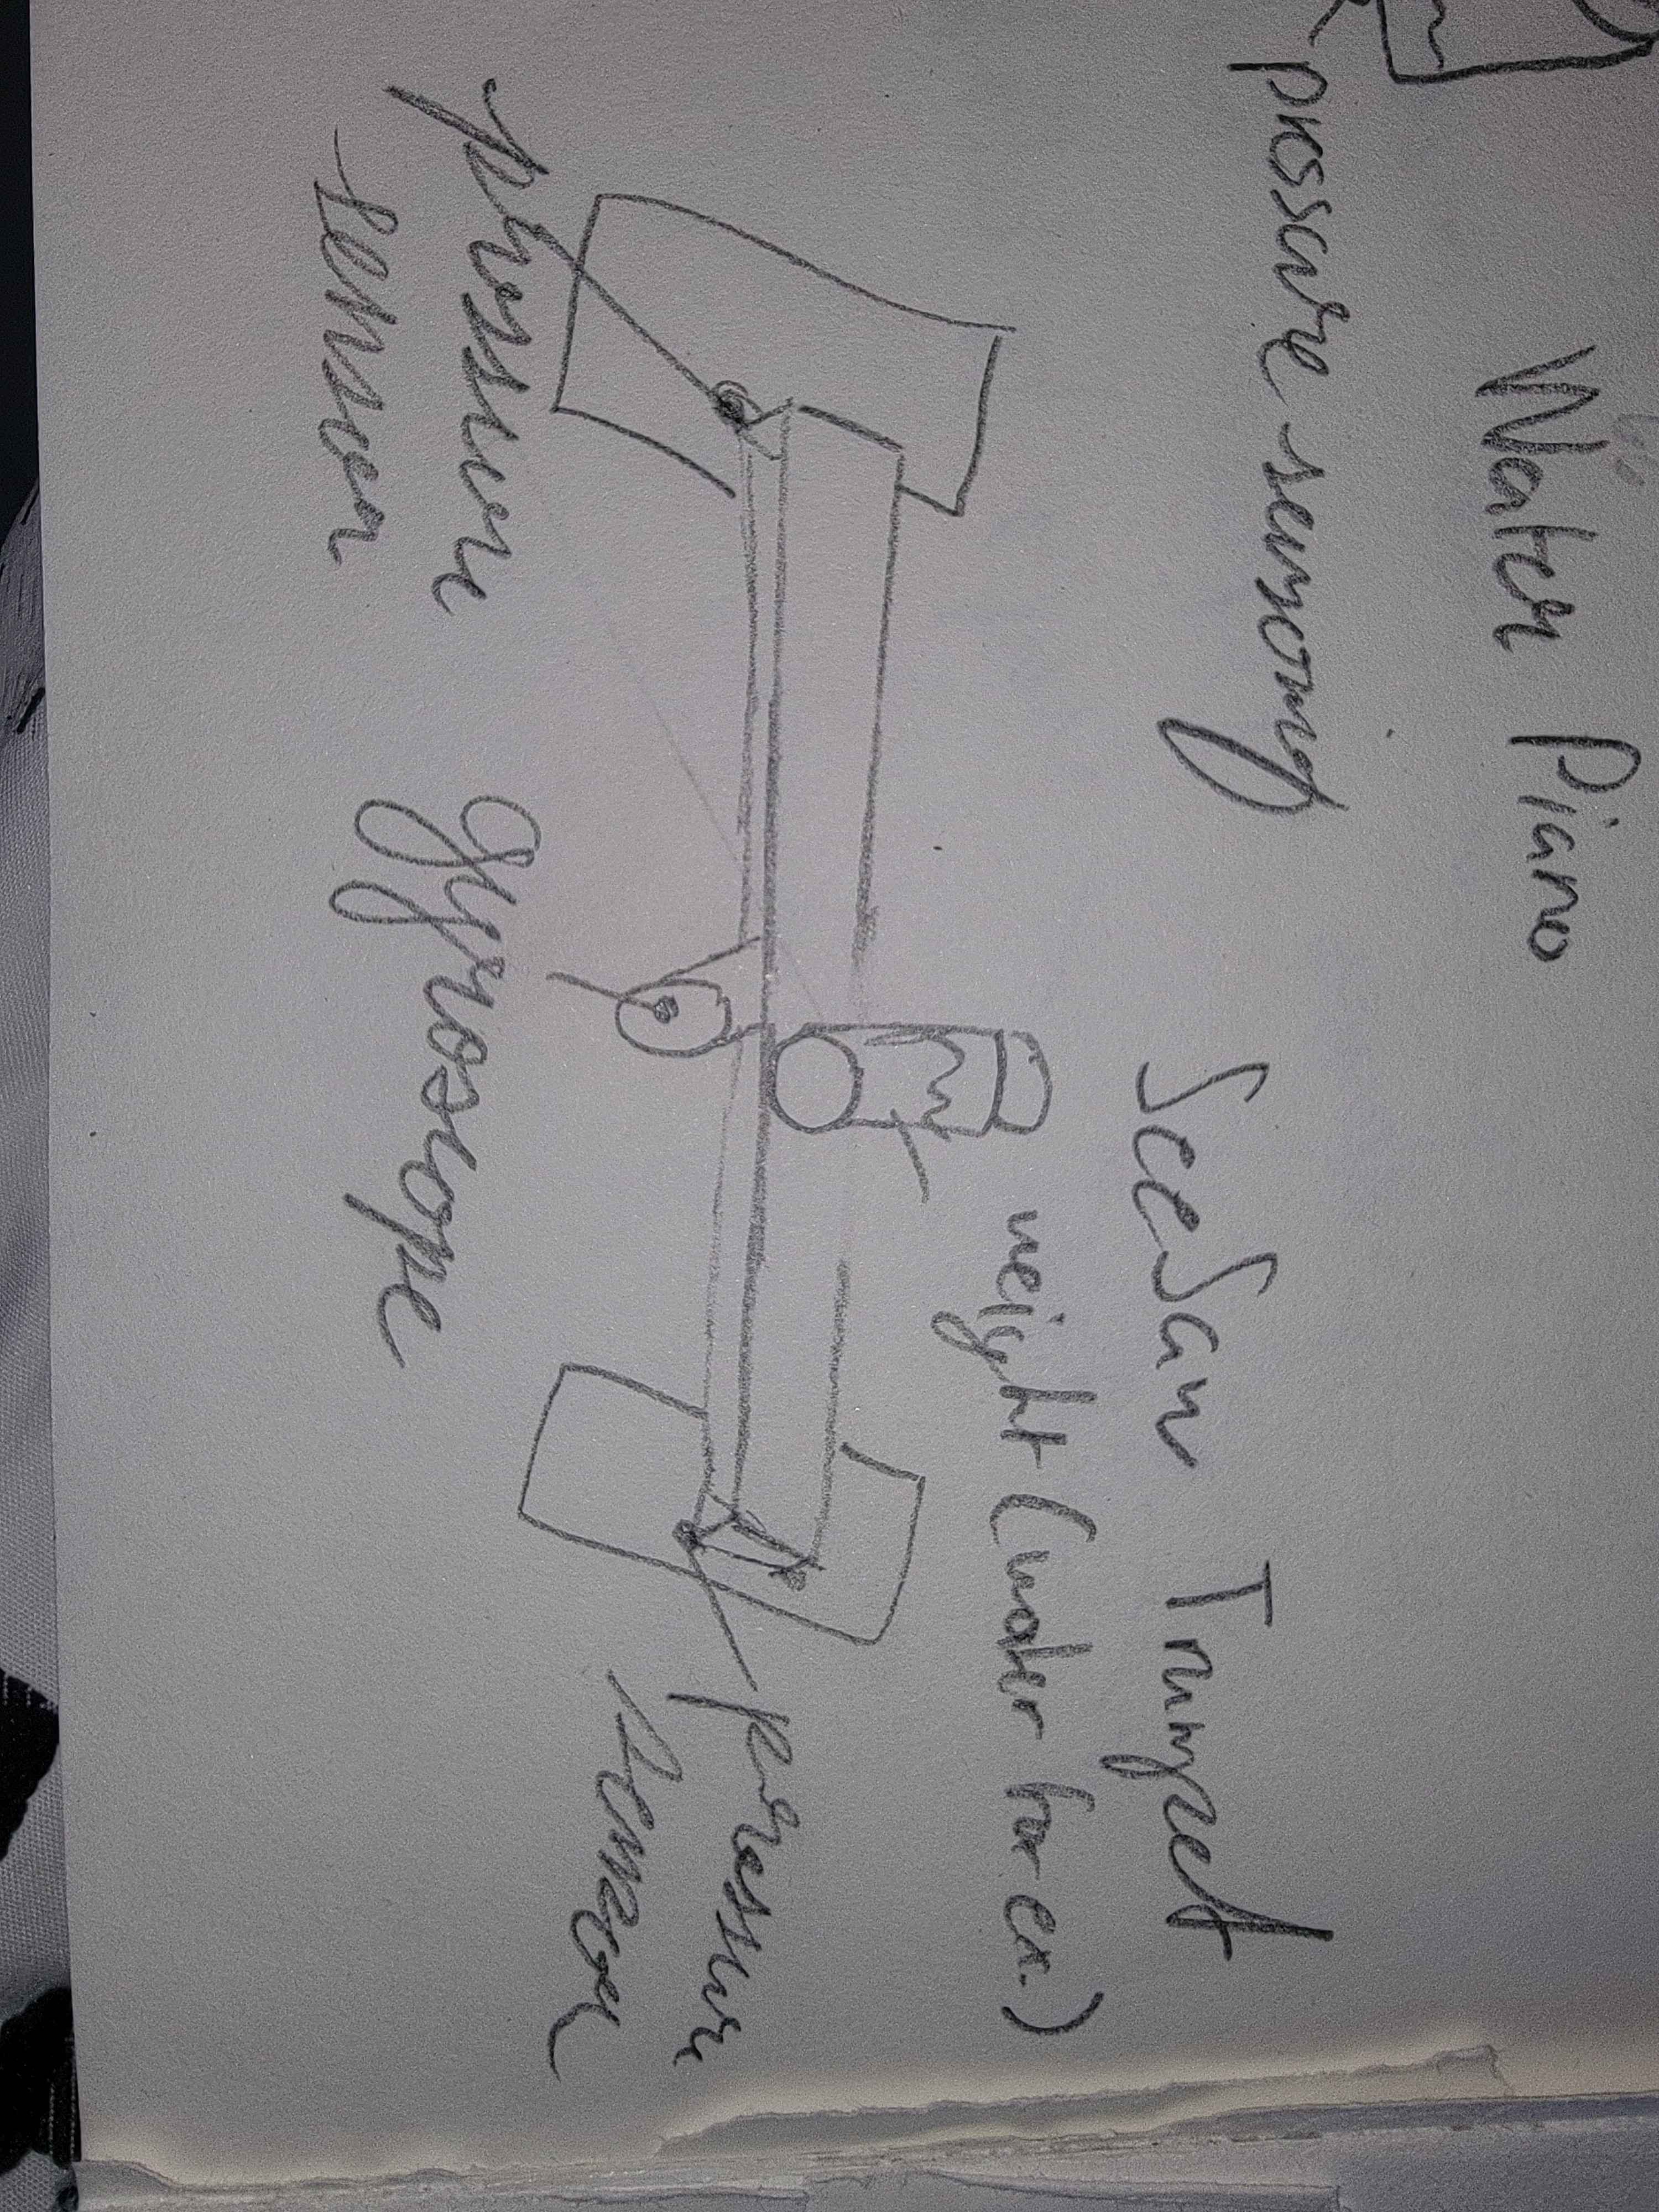 Water Piano
pressure sensoring
SeeSaw Trumpet
weight (water for ex.)
pressure
sensor
gyroscope
pressure
sensor